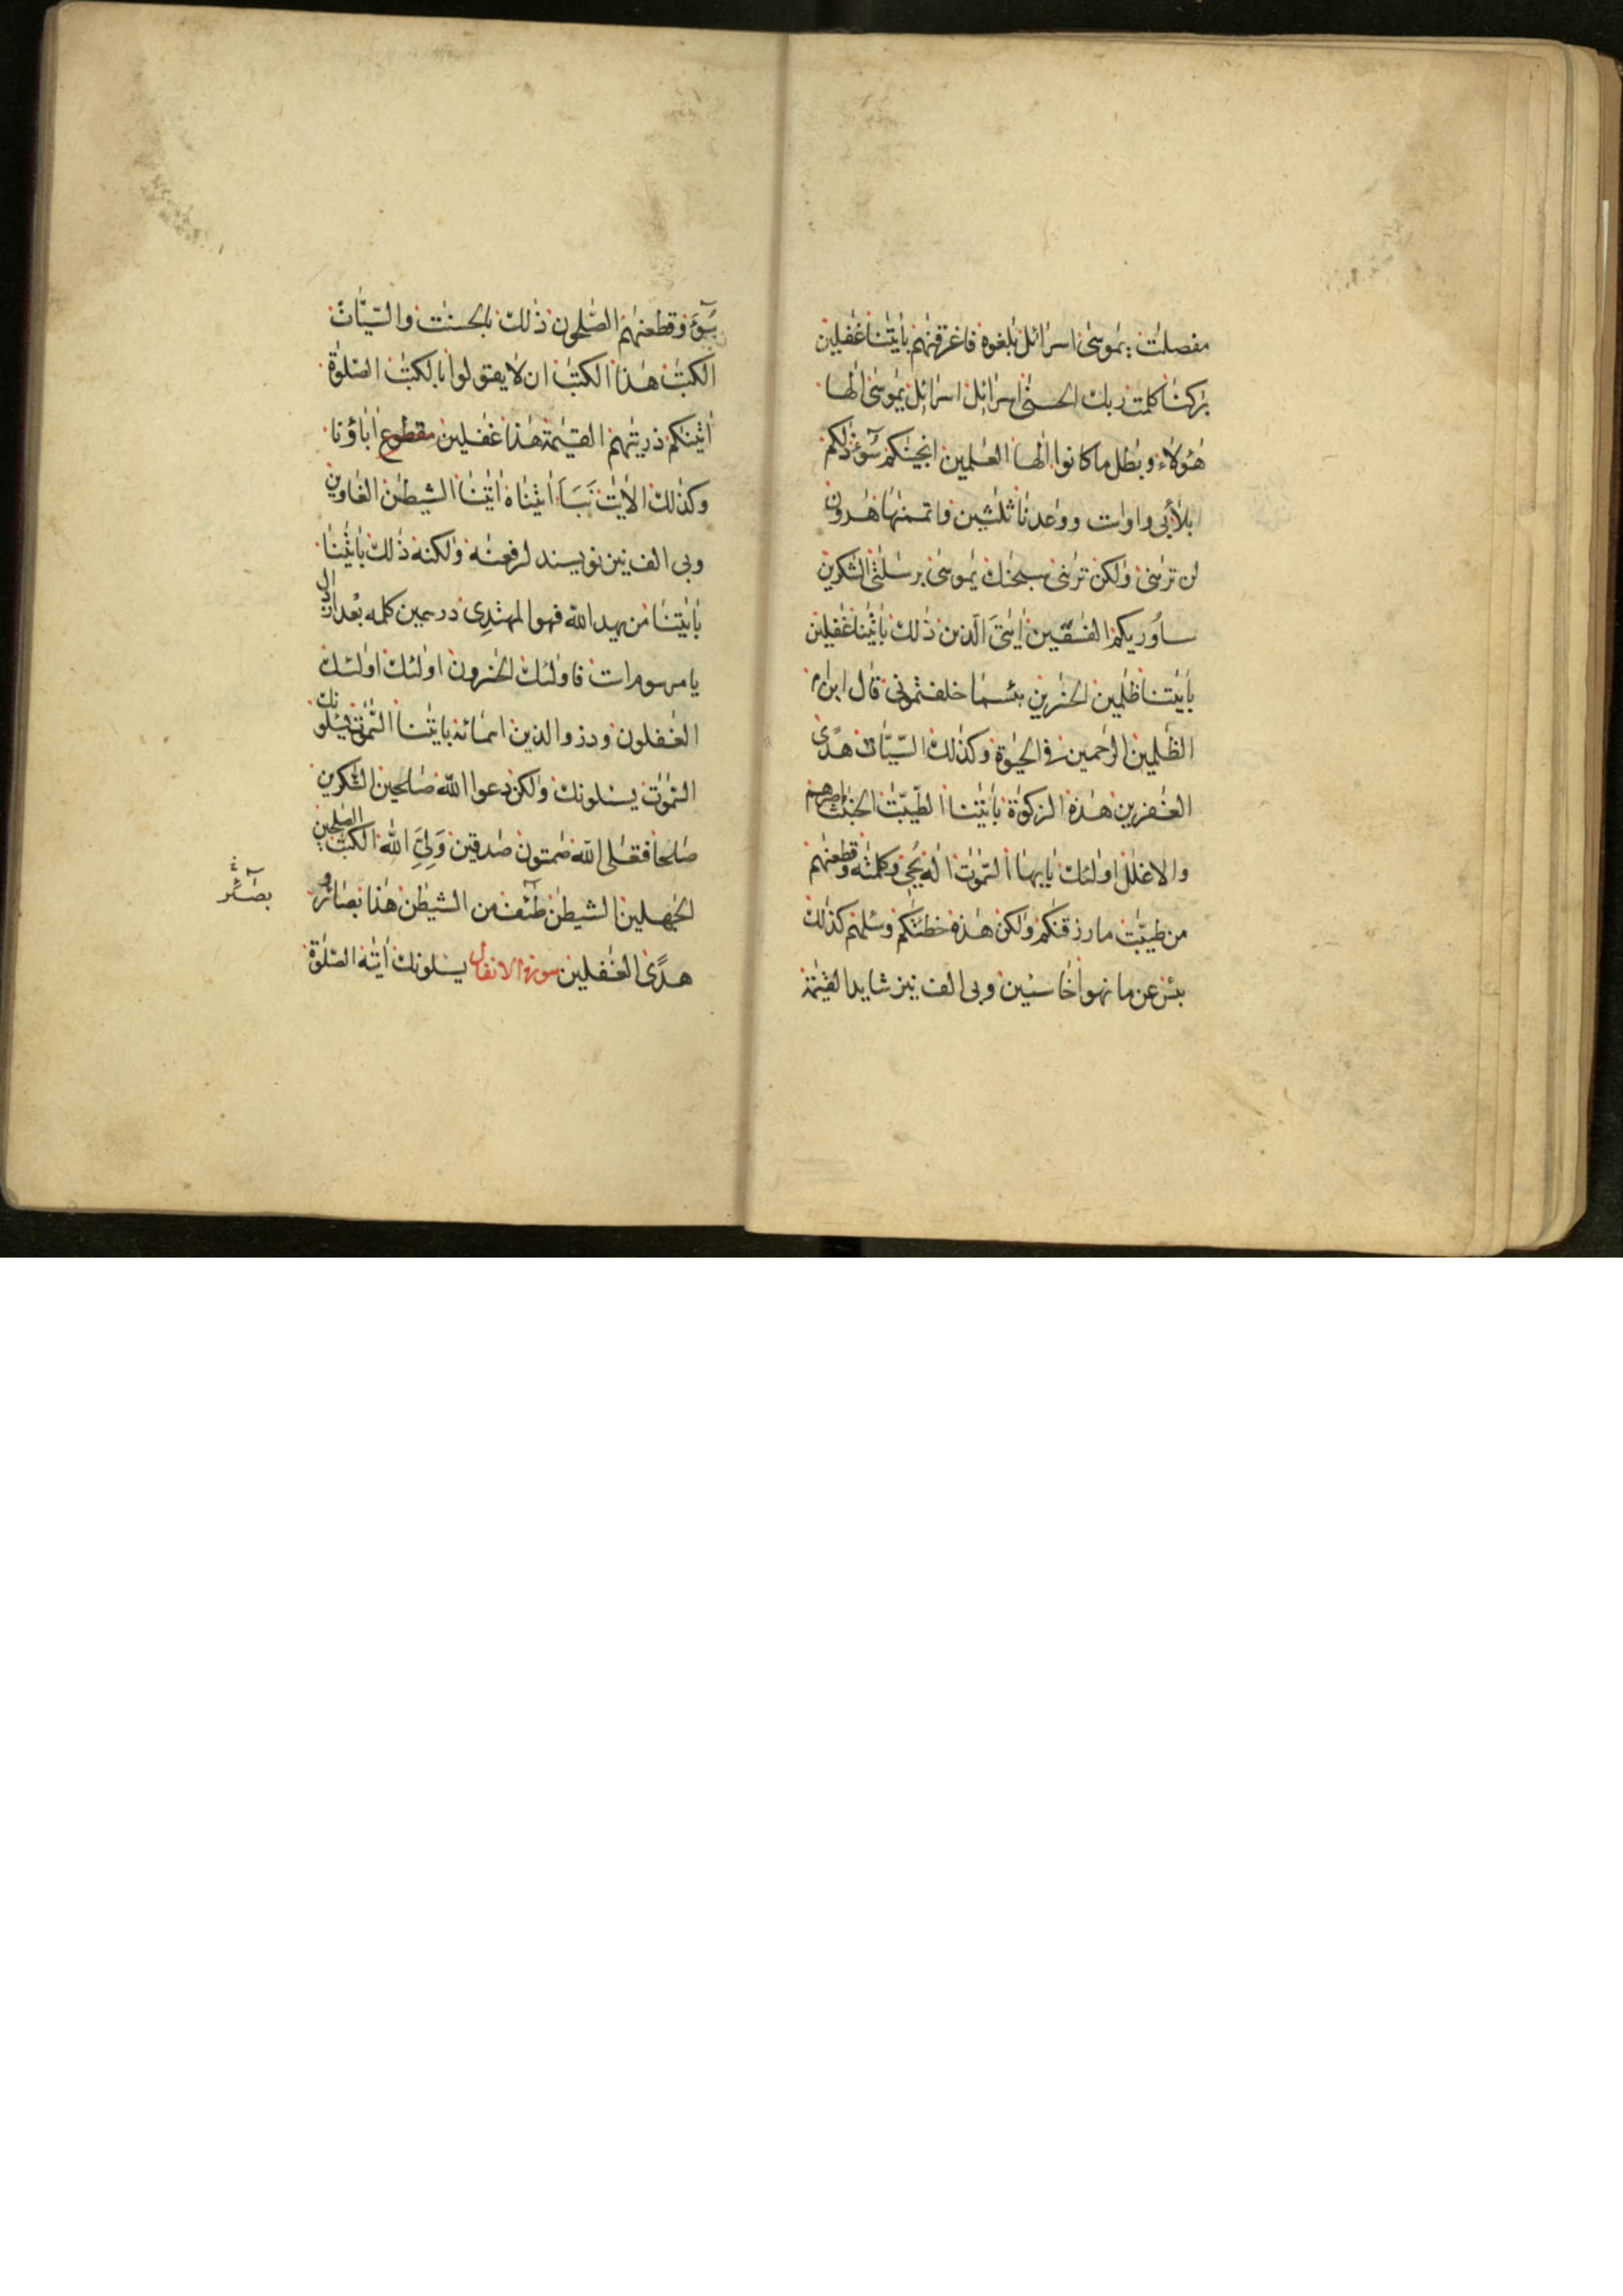 مفصلٰت يٰموسٰى اسرائل بٰلغوه فاغرقنٰهم بأيٰتنا غٰفلين
بٰركنا كلمت ربك الحسنٰى اسرائل اسرائل يٰموسٰى الٰها
هٰؤلاء وبٰطل ما كانوا الٰها العٰلمين انجينٰكم سُوٓءَ ذٰلكم
بلاء بى واو است ووٰعدنا ثلٰثين واتممنٰها هٰرون
لن ترٰىنى ولٰكن ترٰىنى سبحٰنك يٰموسٰى برسٰلٰتى الشّٰكرين
سأوريكم الفٰسقين اٰيٰتىَ الّذين ذٰلك بأيٰتنا غٰفلين
بأيٰتنا ظٰلمين الخٰسرين بئسما خلفتمونى قال ابن ام
الظّٰلمين الرّٰحمين فى الحيٰوة وكذٰلك السّيّاٰت هدًى
الغٰفرين هٰذه الزكوٰة بأيٰتنا الطّيّبٰت الخبٰئث اصرهم
والاغلٰل اولٰئك يٰايها السّمٰوٰت الٰه يُحيى وكلمٰته وقطعنٰهم
من طيّبٰت ما رزقنٰكم ولٰكن هٰذه خطيٓئٰتكم وسئلهم كذٰلك
بئس عن ما نهوا خاسئين وبى الف نيز شايد القيٰمة
سُوٓءَ وقطعنٰهم الصّٰلحون ذٰلك بالحسنٰت والسّيّاٰت
الكتٰب هٰذا الكتٰب ان لا يقولوا بالكتٰب الصّلوٰة
اٰتينٰكم ذريتهم القيٰمة هٰذا غٰفلين مقطوع اٰباؤنا
وكذٰلك الاٰيٰت نَبَاَ اٰتينٰاه اٰيٰتنا الشيطٰن الغاوين
وبى الف نيز نويسند لرفعنٰه ولٰكنه ذٰلك بأيٰتنا
بأيٰتنا من يهد اللّه فهو المهتدِى در همين كلمه بعد از دال
يا مرسوم است فاولٰئك الخٰسرون اولٰئك اولٰئك
الغٰفلون وذروا الذين اسمٰائه بأيٰتنا السّمٰوٰت يسئلونك
السّمٰوٰت يسئلونك ولٰكن دعوا اللّه صٰلحين الشّٰكرين
صٰلحا فتعٰلى اللّه صٰمتون صٰدقين وَلِىَِّ اللّٰه الكتٰب الصّٰلحين
الجٰهلين الشيطٰن طٰٓئف من الشيطٰن هٰذا بصٰائر و
بصٰٓائر
هدًى الغٰفلين سورة الانفال يسئلونك اٰيٰته الصّلوٰة